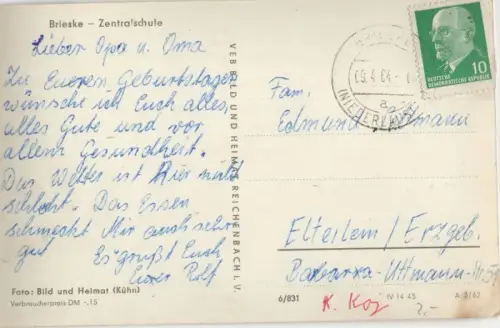 Brieske – Zentralschule
Lieber Opa u. Oma
Zu Eueren Geburtstagen
wünsche ich Euch alles,
alles Gute und vor
allem Gesundheit.
Das Wetter ist Hier nicht
schlecht. Das Essen
schmeckt Mir auch sehr
gut
Es grüßt Euch
Euer Rolf
Foto: Bild und Heimat (Kühn)
Verbraucherpreis DM -,15
VEB BILD UND HEIMAT REICHENBACH I. V.
10
DEUTSCHE
DEMOKRATISCHE REPUBLIK
(NIEDERLAUSITZ)
Fam.
Edmund Uttmann
Elterlein / Erzgeb.
Barbara-Uttmann-Str.
6/831
IV 14 45
A 3/62
2,-